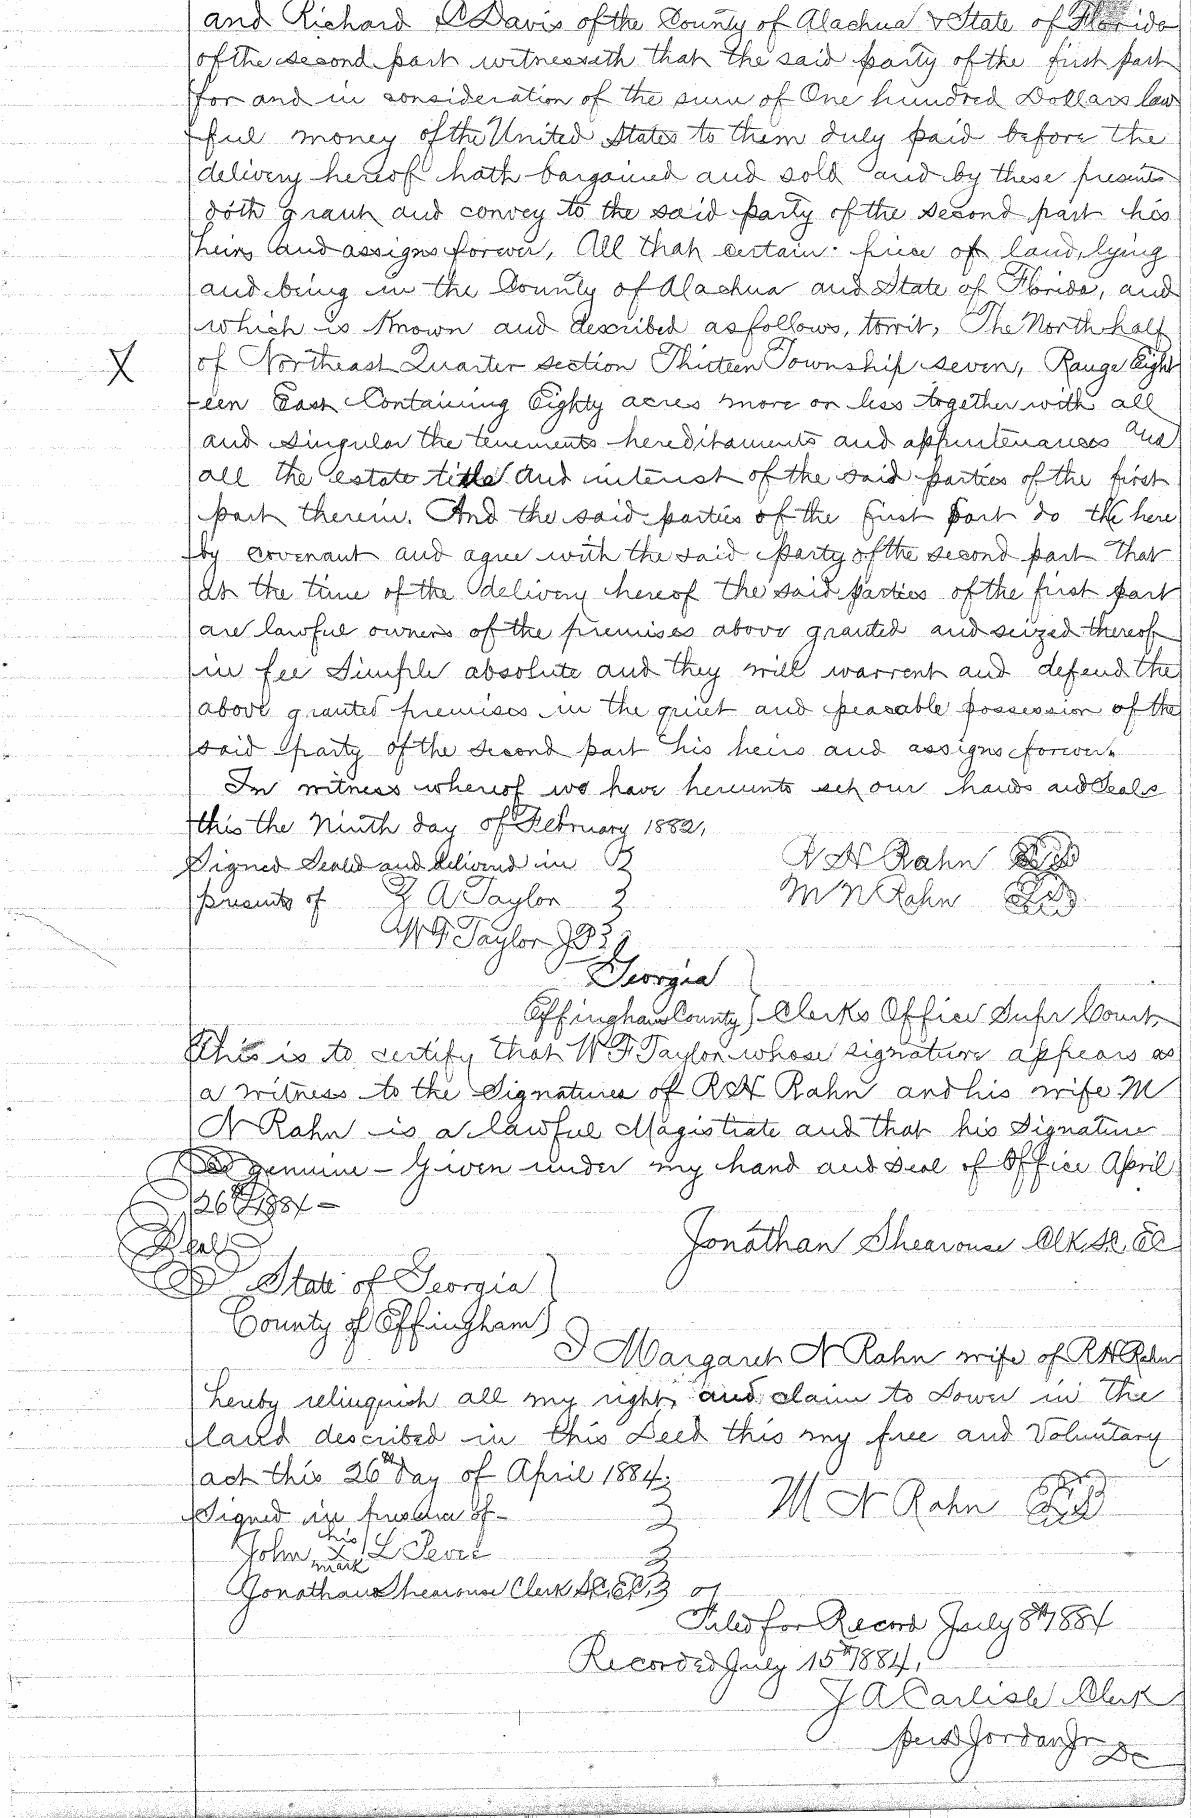 and Richard C Davis of the County of Alachua & State of Florida
of the second part witnesseth that the said party of the first part
for and in consideration of the sum of One hundred Dollars law
ful money of the United States to them duly paid before the
delivery hereof hath bargained and sold and by these presents
doth grant and convey to the said party of the second part his
heirs and assigns forever, All that certain piece of land, lying
and being in the County of Alachua and State of Florida, and
which is Known and described as follows, towit, The North half
X
of Northeast Quarter section Thirteen Township seven, Range Eight
een East Containing Eighty acres more or less together with all
and singular the tenements hereditaments and appurtenances and
all the estate title and interest of the said parties of the first
part therein. And the said parties of the first part do the here
by covenant and agree with the said party of the second part that
at the time of the delivery hereof the said parties of the first part
are lawful owners of the premises above granted and seized thereof
in fee Simple absolute and they will warrent and defend the
above granted premises in the quiet and peacable possession of the
said party of the second part his heirs and assigns forever.
In witness whereof we have hereunto set our hands and Seals
this the Ninth day of February 1882,
Signed Sealed and delivered in R H Rahn
presents of Z A Taylor M N Rahn
W F Taylor JP
Georgia
Effingham County Clerks Office Supr Court,
This is to certify that W F Taylor whose signature appears as
a witness to the Signatures of R H Rahn and his wife M
N Rahn is a lawful Magistrate and that his Signature
is genuine – Given under my hand and Seal of Office April
26th 1884 –
Jonathan Shearouse Clk S.C. E C
Seal
State of Georgia
County of Effingham
I Margaret N Rahn wife of R H Rahn
hereby relinquish all my right, and claim to Dower in the
land described in this Deed this my free and Voluntary
act this 26th day of April 1884.
Signed in presence of – M N Rahn
his
John X L
mark
Jonathan Shearouse Clerk S.C. E.C.
Filed for Record July 8th 1884
Recorded July 15th 1884,
J A Carlisle Clerk
per Jordan Jr
DC